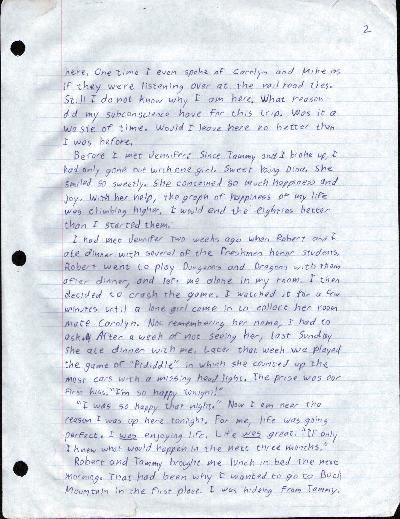 2
here. One time I even spoke of Carolyn and Mike as
if they were listening over at the railroad ties.
Still I do not know why I am here. What reason
did my subconscience have for this trip. Was it a
waste of time. Would I leave here no better than
I was before.
Before I met Jennifer: Since Tammy and I broke up, I
had only gone out with one girl. Sweet Young Diane. She
smiled so sweetly. She conceined so much happiness and
joy. With her help, the graph of happiness of my life
was climbing higher. I would end the eighties better
than I started them.
I had met Jennifer two weeks ago when Robert and I
ate dinner with several of the Freshmen honor students.
Robert went to play Dungeons and Dragons with them
after dinner, and left me alone in my room. I then
decided to crash the game. I watched it for a few
minutes until a lone girl came in to collect her room
mate Carolyn. Not remembering her name, I had to
ask. After a week of not seeing her, last Sunday
she ate dinner with me. Later that week we played
the game of "Pididdle" in which she counted up the
most cars with a missing head light. The prise was our
first kiss. "I'm so happy tonight!"
"I was so happy that night." Now I am near the
reason I was up here tonight. For me, life was going
perfect. I was enjoying life. Life was great. "If only
I knew what would happen in the next three months."
Robert and Tammy brought me lunch in bed the next
morning. That had been why I wanted to go to Buck
Mountain in the first place. I was hiding from Tammy.